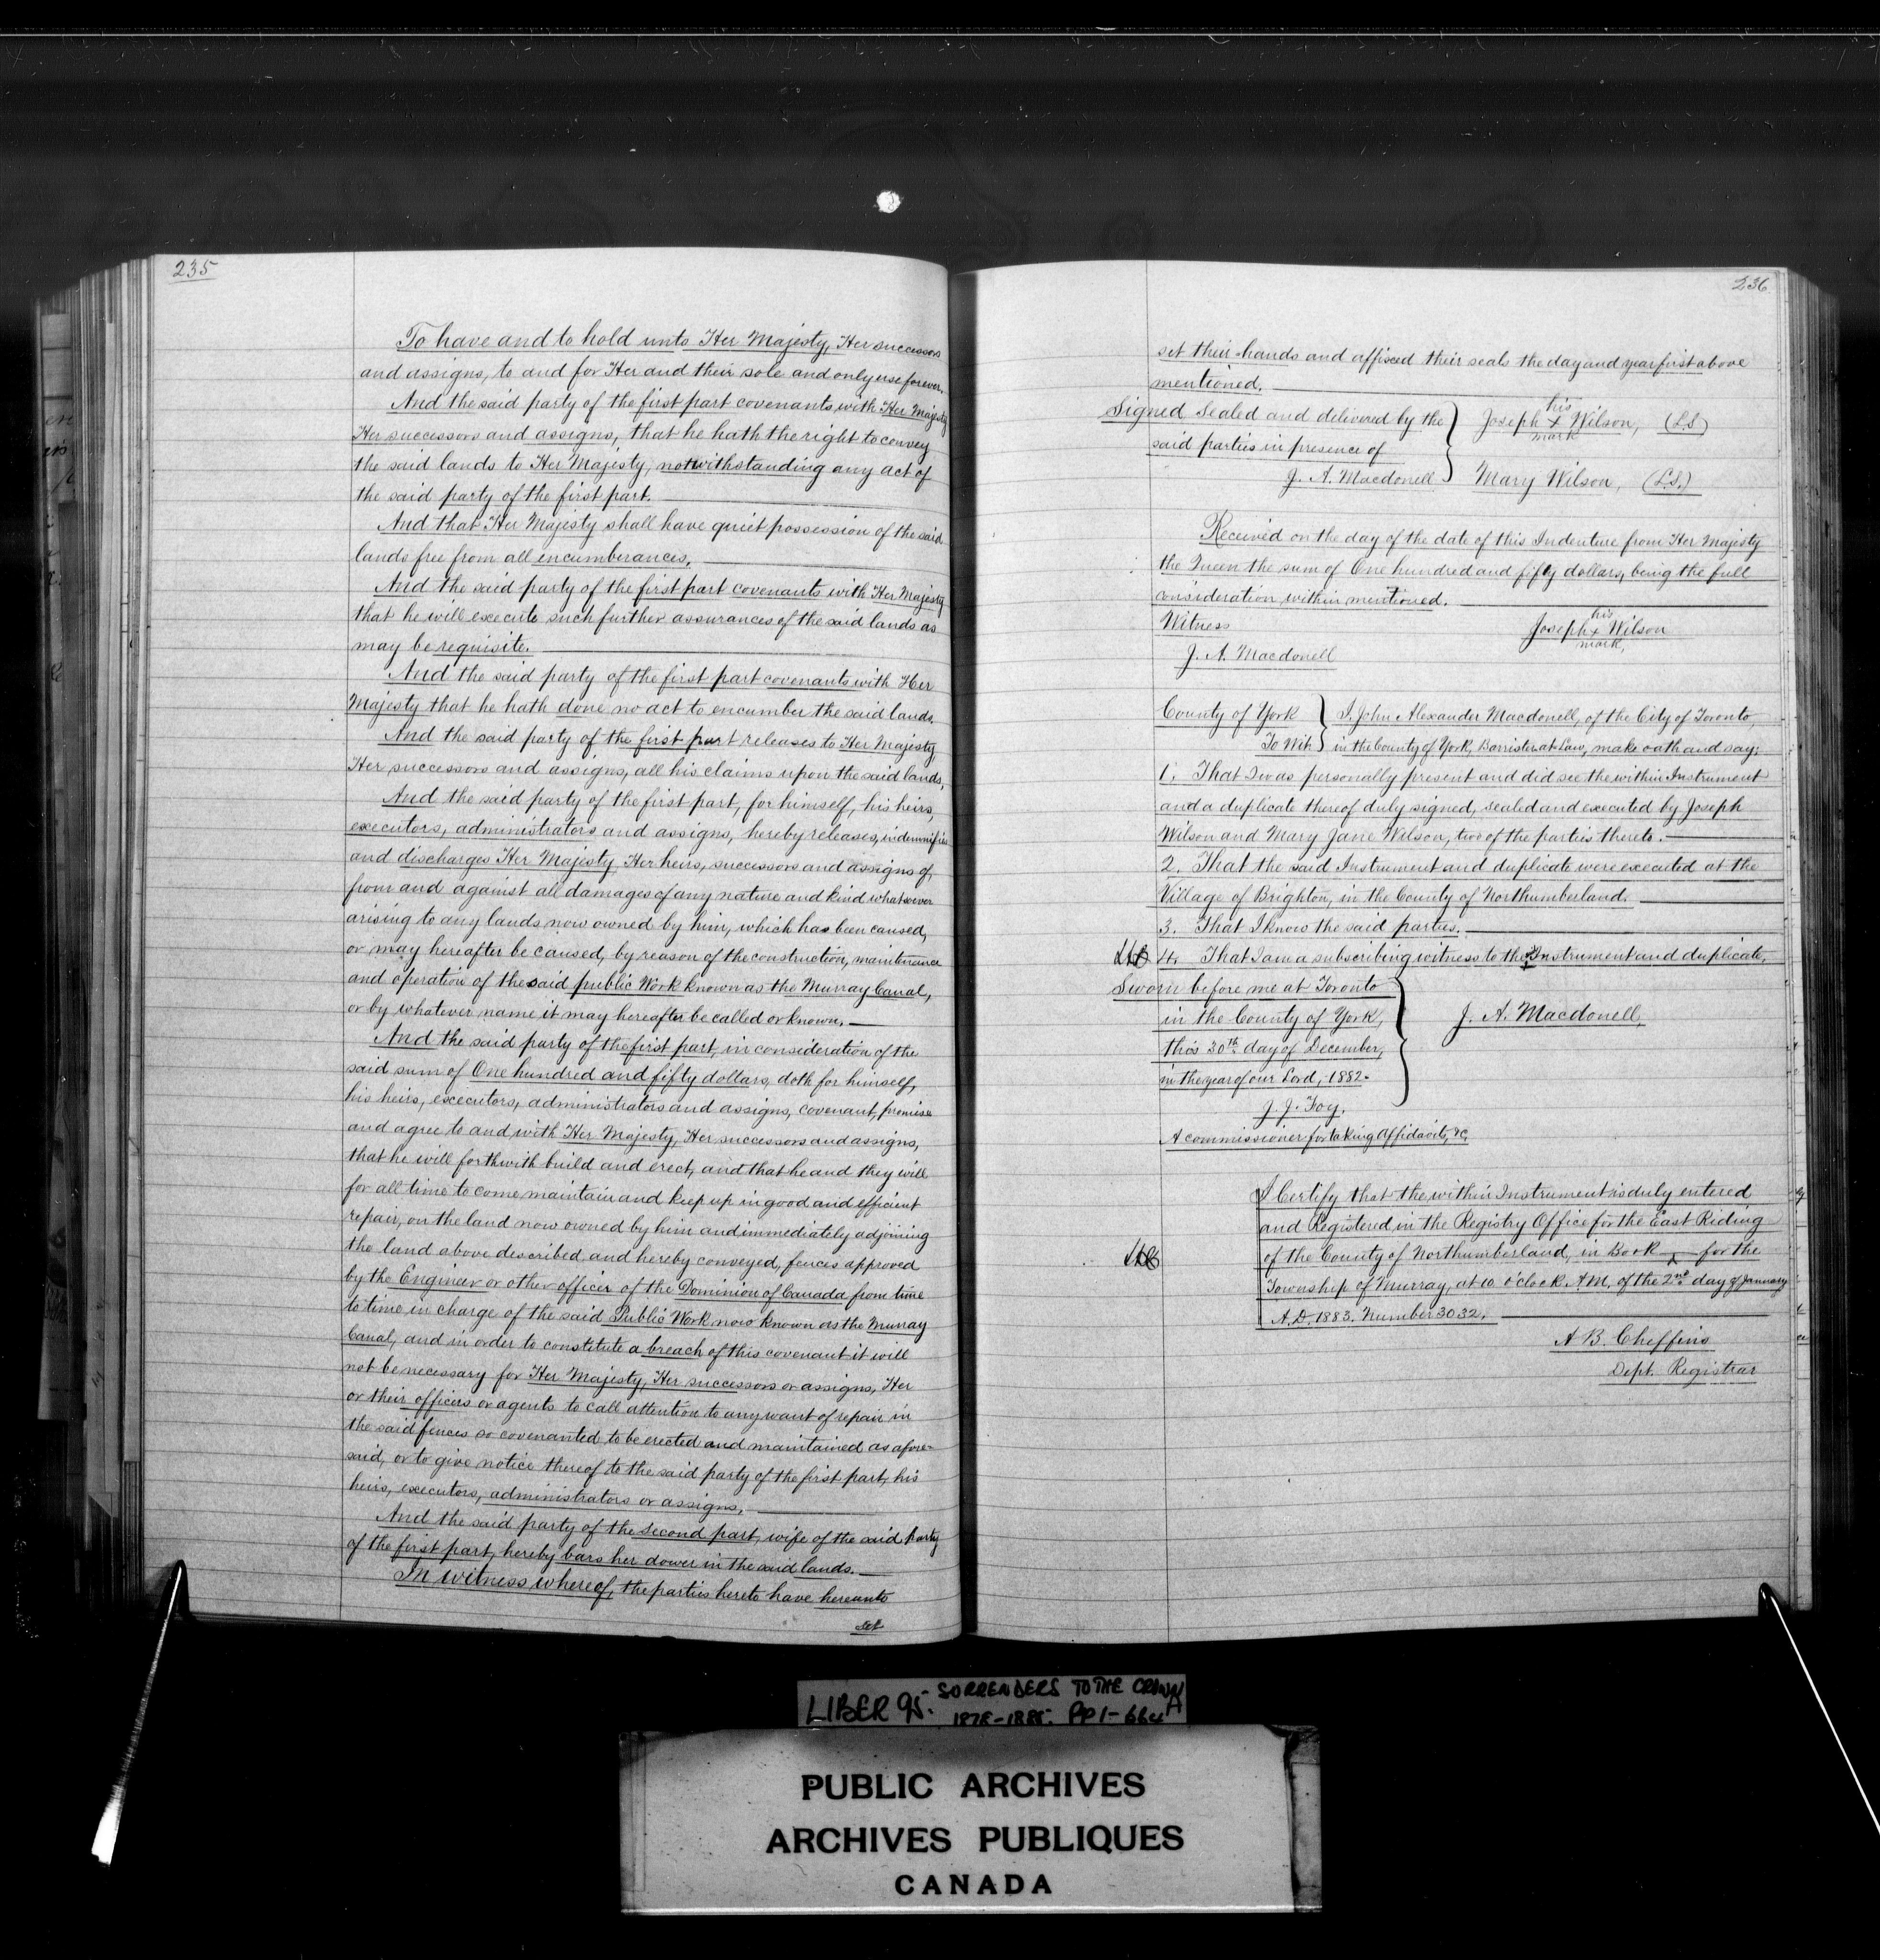 235
To have and to hold unto Her Majesty, Her successors
and assigns, to and for Her and their sole and only use forever.
And the said party of the first part covenants with Her Majesty
Her successors and assigns, that he hath the right to convey
the said lands to Her Majesty, notwithstanding any act of
the said party of the first part.
And that Her Majesty shall have quiet possession of the said
lands free from all encumberances.
And the said party of the first part covenants with Her Majesty
that he will execute such further assurances of the said lands as
may be requisite.
And the said party of the first part covenants with Her
Majesty that he hath done no act to encumber the said lands.
And the said party of the first part releases to Her Majesty
Her successors and assigns, all his claims upon the said lands,
And the said party of the first part, for himself, his heirs,
executors, administrators and assigns, hereby releases, indemnifies
and discharges Her Majesty, Her heirs, successors and assigns of,
from and against all damages of any nature and kind whatsoever
arising to any lands now owned by him, which has been caused,
or may hereafter be caused, by reason of the construction, maintenance
and operation of the said public Work known as the Murray Canal,
or by whatever name it may hereafter be called or known.
And the said party of the first part, in consideration of the
said sum of One hundred and fifty dollars, doth for himself,
his heirs, executors, administrators and assigns, covenant, promise
and agree to and with Her Majesty, Her successors and assigns,
that he will forthwith build and erect, and that he and they will
for all time to come maintain and keep up in good and efficient
repair, on the land now owned by him and immediately adjoining
the land above described, and hereby conveyed, fences approved
by the Engineer or other officer of the Dominion of Canada from time
to time in charge of the said Public Work now known as the Murray
Canal, and in order to constitute a breach of this covenant it will
not be necessary for Her Majesty, Her successors or assigns, Her
or their officers or agents to call attention to any want of repair in
the said fences so covenanted to be erected and maintained as afore=
said, or to give notice thereof to the said party of the first part, his
heirs, executors, administrators or assigns.
And the said party of the second part, wife of the said Party
of the first part, hereby bars her dower in the said lands.
In witness whereof, the parties hereto have hereunto
set
236
set their hands and affixed their seals the day and year first above
mentioned.
Signed Sealed and delivered by the
said parties in presence of
J. A. Macdonell
his
Joseph x Wilson, (L.S)
mark
Mary Wilson, (L.S.)
Received on the day of the date of this Indenture from Her Majesty
the Queen the sum of One hundred and fifty dollars, being the full
consideration within mentioned.
Witness
J. A. Macdonell
his
Joseph x Wilson
mark,
County of York
To Wit
I, John Alexander Macdonell, of the City of Toronto,
in the County of York, Barrister at Law, make oath and say:
1, That I was personally present and did see the within Instrument
and a duplicate thereof duly signed, sealed and executed by Joseph
Wilson and Mary Jane Wilson, two of the parties thereto.
2. That the said Instrument and duplicate were executed at the
Village of Brighton, in the County of Northumberland.
3. That I know the said parties.
4. That I am a subscribing witness to the Instrument and duplicate,
Sworn before me at Toronto
in the County of York,
this 30th day of December,
in the year of our Lord, 1882.
J. J. Foy,
A commissioner for taking Affidavits, &c,
J. A. Macdonell,
I Certify that the within Instrument is duly entered
and Registered in the Registry Office for the East Riding
of the County of Northumberland, in Book for the
Township of Murray, at 10 o'clock A.M. of the 2nd day of January
A.D. 1883. Number 3032.
A. B. Cheffins
Dept. Registrar
LIBER 95. SORRENDERS TO THE CROWN
1878-1885. PP 1-664A
PUBLIC ARCHIVES
ARCHIVES PUBLIQUES
CANADA